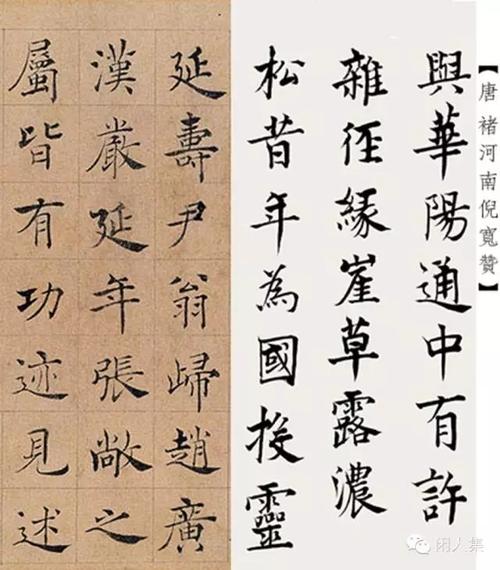 【唐褚河南倪寬贊】
與華陽通中有許
雜徑緣崖草露濃
松昔年為國投靈
延壽尹翁歸趙廣
漢嚴延年張敞之
屬皆有功迹見述
闲人集